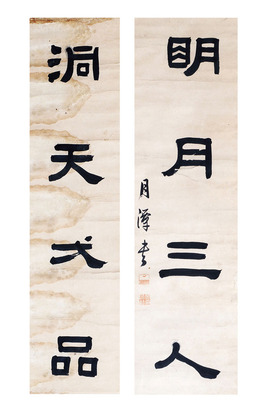 眀月三人
洞天弌品
月 書